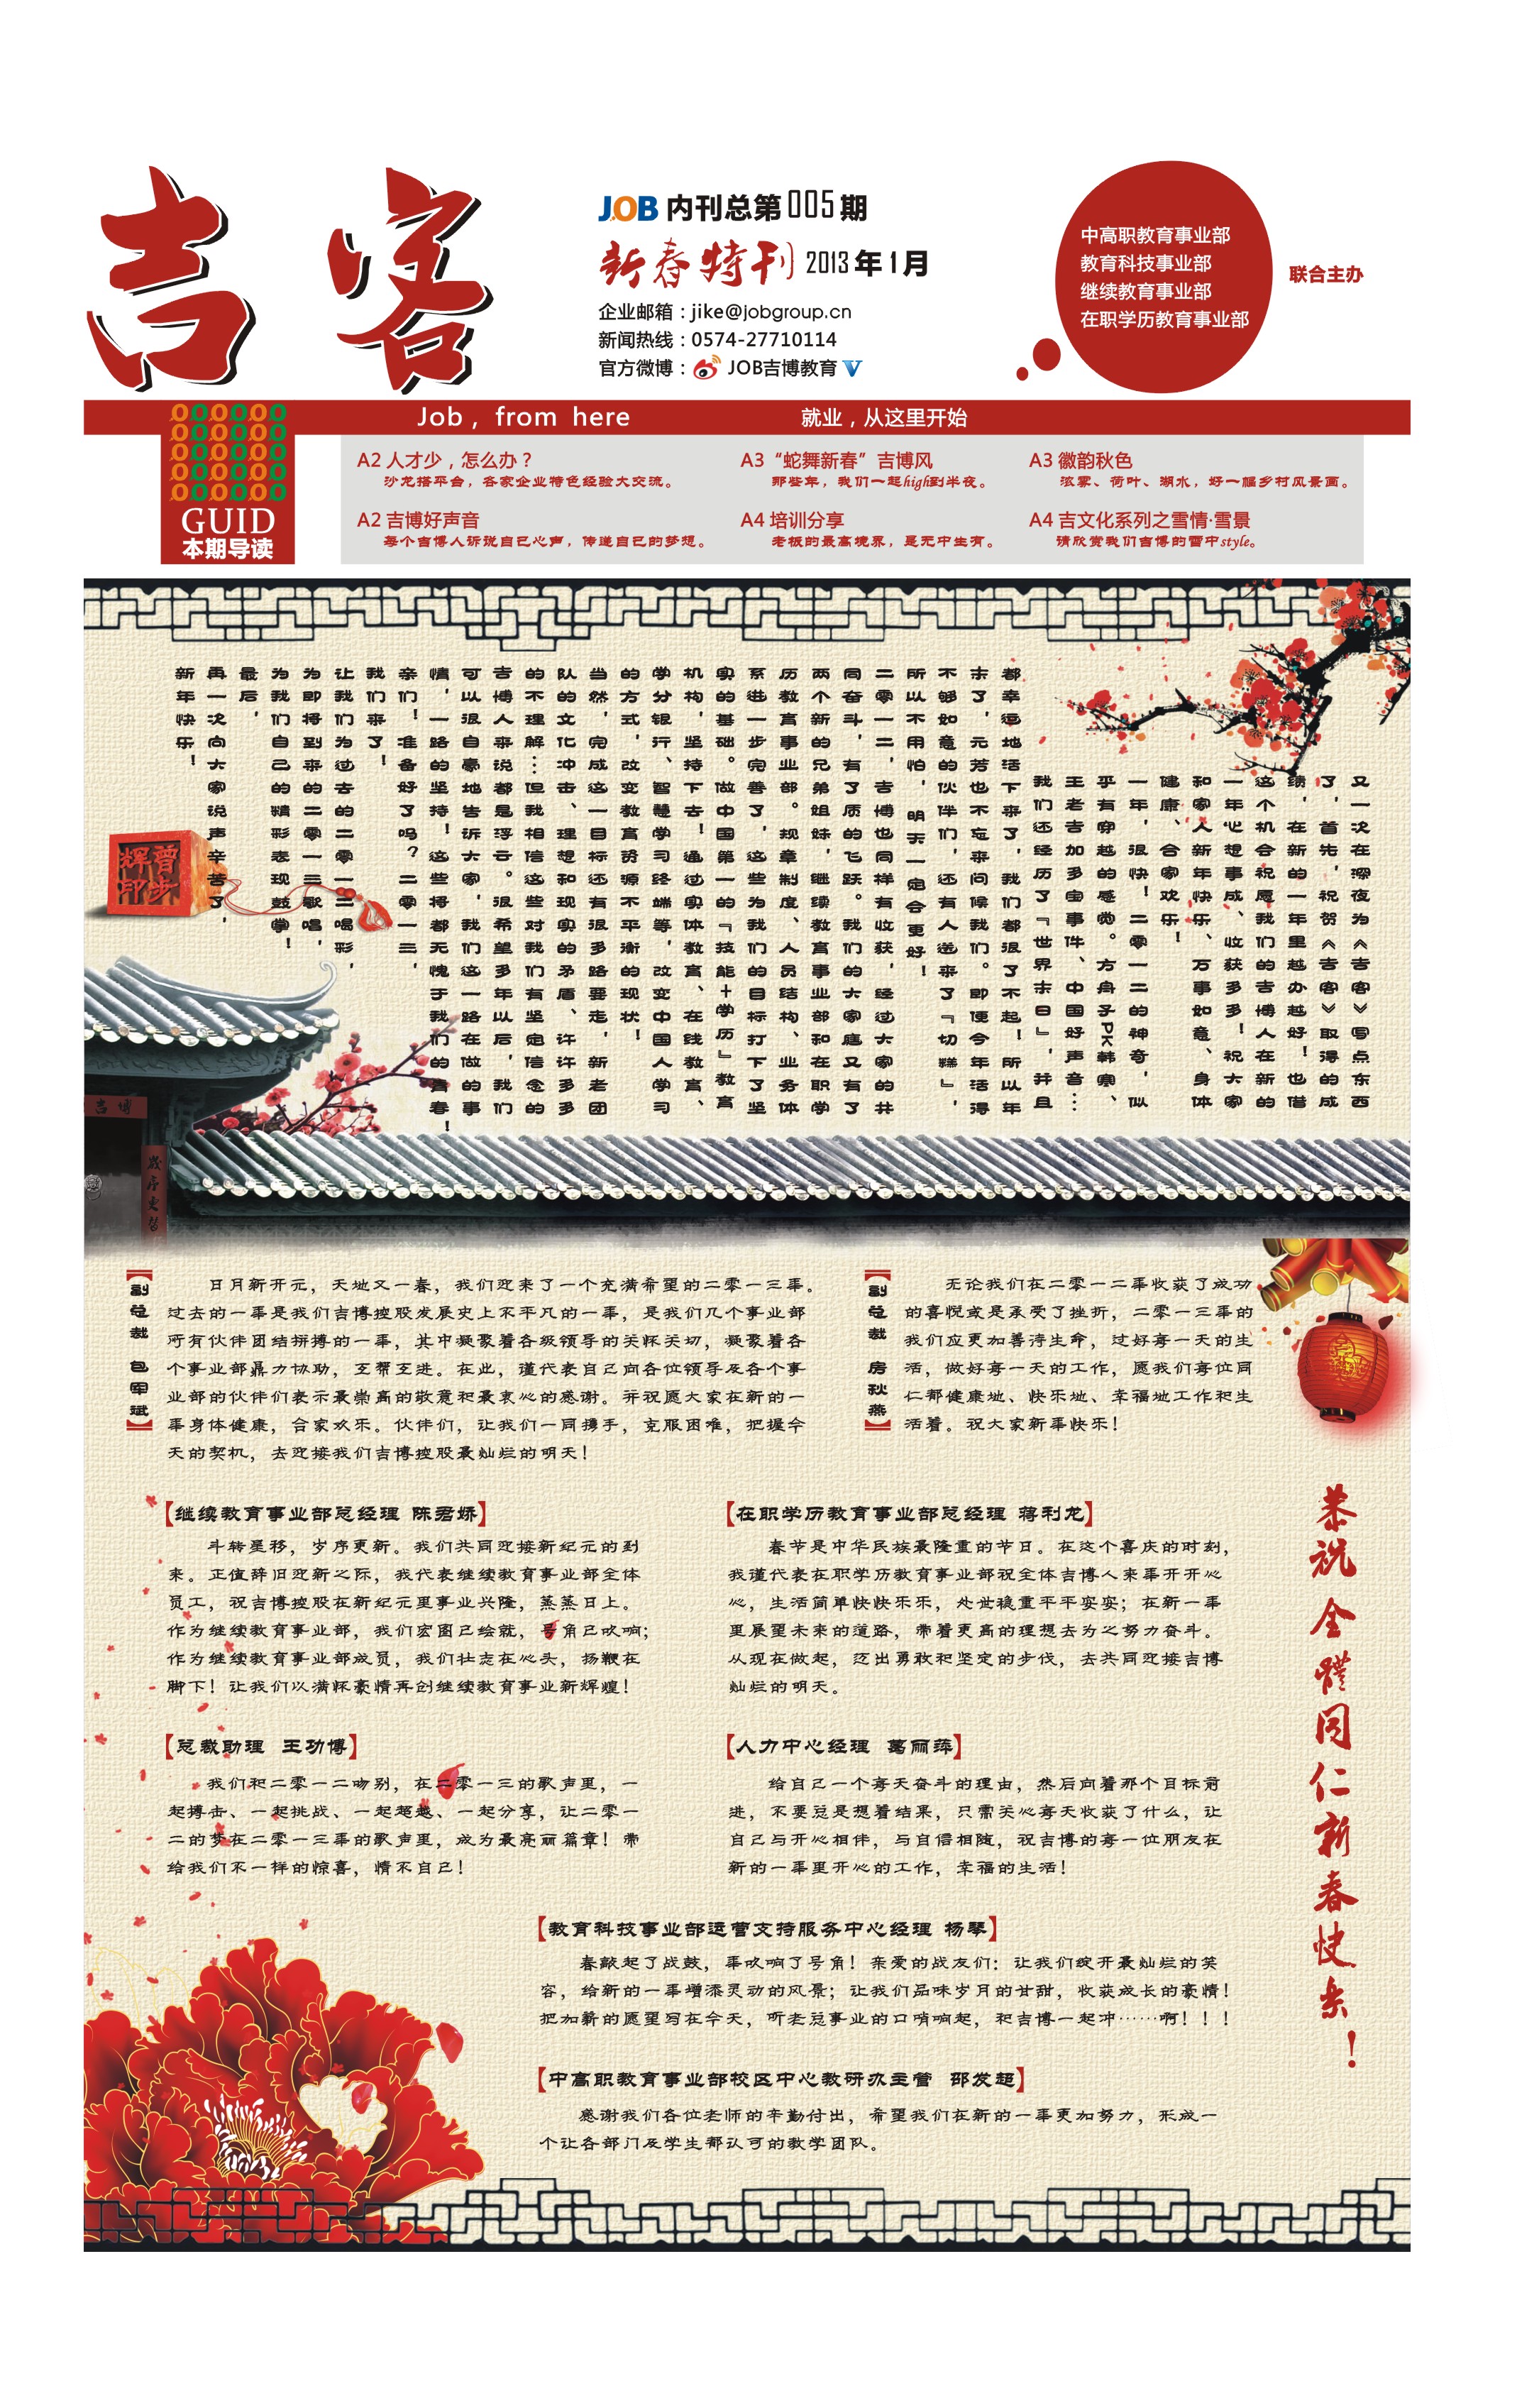 吉客
JOB 内刊总第005期
新春特刊 2013年1月
企业邮箱：jike@jobgroup.cn
新闻热线：0574-27710114
官方微博：JOB吉博教育 V
中高职教育事业部
教育科技事业部
继续教育事业部
在职学历教育事业部
联合主办
Job，from here 就业，从这里开始
GUID
本期导读
A2 人才少，怎么办？
沙龙搭平台，各家企业特色经验大交流。
A2 吉博好声音
每个吉博人诉说自己心声，传递自己的梦想。
A3 “蛇舞新春”吉博风
那些年，我们一起high到半夜。
A4 培训分享
老板的最高境界，是无中生有。
A3 徽韵秋色
浓雾、荷叶、湖水，好一幅乡村风景画。
A4 吉文化系列之雪情·雪景
请欣赏我们吉博的雪中style。
又一次在深夜为《吉客》写点东西
了，首先，祝贺《吉客》取得的成
绩，在新的一年里越办越好！也借
这个机会祝愿我们的吉博人在新的
一年心想事成、收获多多！祝大家
和家人新年快乐、万事如意、身体
健康、合家欢乐！
一年，很快！二零一二的神奇，似
乎有穿越的感觉。方舟子PK韩寒、
王老吉加多宝事件、中国好声音…
我们还经历了『世界末日』，并且
都幸运地活下来了，我们都很了不起！所以年
末了，元芳也不忘来问候我们。即便今年活得
不够如意的伙伴们，还有人送来了『切糕』，
所以不用怕，明天一定会更好！
二零一二，吉博也同样有收获，经过大家的共
同奋斗，有了质的飞跃。我们的大家庭又有了
两个新的兄弟姐妹，继续教育事业部和在职学
历教育事业部。规章制度、人员结构、业务体
系进一步完善了，这些为我们的目标打下了坚
实的基础。做中国第一的『技能+学历』教育
机构，坚持下去！通过实体教育、在线教育、
学分银行、智慧学习终端等，改变中国人学习
的方式，改变教育资源不平衡的现状！
当然，完成这一目标还有很多路要走，新老团
队的文化冲击、理想和现实的矛盾、许许多多
的不理解…但我相信这些对我们有坚定信念的
吉博人来说都是浮云。很希望多年以后，我们
可以很自豪地告诉大家，我们这一路在做的事
情，一路的坚持！这些将都无愧于我们的青春！
亲们！准备好了吗？二零一三，
我们来了！
让我们为过去的二零一二喝彩，
为即将到来的二零一三歌唱，
为我们自己的精彩表现鼓掌！
最后，
再一次向大家说声辛苦了，
新年快乐！
吉博
歲序更替
【副总裁 包军斌】
日月新开元，天地又一春，我们迎来了一个充满希望的二零一三年。
过去的一年是我们吉博控股发展史上不平凡的一年，是我们几个事业部
所有伙伴团结拼搏的一年，其中凝聚着各级领导的关怀关切，凝聚着各
个事业部鼎力协助，互帮互进。在此，谨代表自己向各位领导及各个事
业部的伙伴们表示最崇高的敬意和最衷心的感谢。并祝愿大家在新的一
年身体健康，合家欢乐。伙伴们，让我们一同携手，克服困难，把握今
天的契机，去迎接我们吉博控股最灿烂的明天！
【副总裁 房秋燕】
无论我们在二零一二年收获了成功
的喜悦或是承受了挫折，二零一三年的
我们应更加善待生命，过好每一天的生
活，做好每一天的工作，愿我们每位同
仁都健康地、快乐地、幸福地工作和生
活着。祝大家新年快乐！
【继续教育事业部总经理 陈君娇】
斗转星移，岁序更新。我们共同迎接新纪元的到
来。正值辞旧迎新之际，我代表继续教育事业部全体
员工，祝吉博控股在新纪元里事业兴隆，蒸蒸日上。
作为继续教育事业部，我们宏图已绘就，号角已吹响；
作为继续教育事业部成员，我们壮志在心头，扬鞭在
脚下！让我们以满怀豪情再创继续教育事业新辉煌！
【在职学历教育事业部总经理 蒋利龙】
春节是中华民族最隆重的节日。在这个喜庆的时刻，
我谨代表在职学历教育事业部祝全体吉博人来年开开心
心，生活简单快快乐乐，处世稳重平平安安；在新一年
里展望未来的道路，带着更高的理想去为之努力奋斗。
从现在做起，迈出勇敢和坚定的步伐，去共同迎接吉博
灿烂的明天。
【总裁助理 王功博】
我们和二零一二吻别，在二零一三的歌声里，一
起搏击、一起挑战、一起超越、一起分享，让二零一
二的梦在二零一三年的歌声里，成为最亮丽篇章！带
给我们不一样的惊喜，情不自已！
【人力中心经理 葛丽萍】
给自己一个每天奋斗的理由，然后向着那个目标前
进，不要总是想着结果，只需关心每天收获了什么，让
自己与开心相伴，与自信相随，祝吉博的每一位朋友在
新的一年里开心的工作，幸福的生活！
【教育科技事业部运营支持服务中心经理 杨琴】
春敲起了战鼓，年吹响了号角！亲爱的战友们：让我们绽开最灿烂的笑
容，给新的一年增添灵动的风景；让我们品味岁月的甘甜，收获成长的豪情！
把加薪的愿望写在今天，听老总事业的口哨响起，和吉博一起冲……啊！！！
【中高职教育事业部校区中心教研办主管 邵发超】
感谢我们各位老师的辛勤付出，希望我们在新的一年更加努力，形成一
个让各部门及学生都认可的教学团队。
恭祝全體同仁新春快乐！